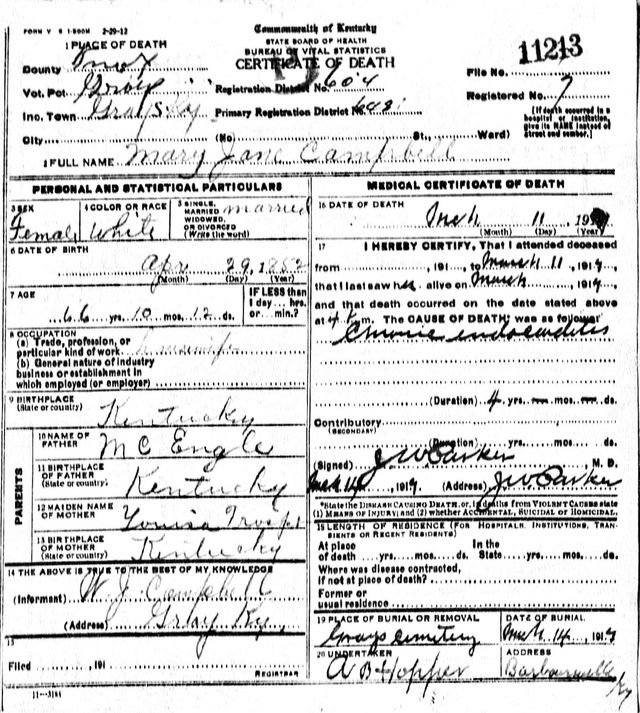 FORM V S 1-500M 2-29-12
Commonwealth of Kentucky
STATE BOARD OF HEALTH
BUREAU OF VITAL STATISTICS
CERTIFICATE OF DEATH
1 PLACE OF DEATH
County Knox
Vot. Pct Grays
Inc. Town Grays Ky
City (No St., Ward)
Registration District No. 604
Primary Registration District No. 6481
11213
File No.
Registered No. 7
[If death occurred in a hospital or institution, give its NAME instead of street and number.]
2 FULL NAME Mary Jane Campbell
PERSONAL AND STATISTICAL PARTICULARS
3 SEX Female
4 COLOR OR RACE White
5 SINGLE, MARRIED, WIDOWED, OR DIVORCED (Write the word) married
6 DATE OF BIRTH
Apr 29, 1852
(Month) (Day) (Year)
7 AGE
66 yrs. 10 mos. 12 ds.
IF LESS than 1 day hrs. or min.?
8 OCCUPATION
(a) Trade, profession, or
particular kind of work housewife
(b) General nature of industry
business or establishment in
which employed (or employer)
9 BIRTHPLACE
(State or country) Kentucky
PARENTS
10 NAME OF FATHER MC Engle
11 BIRTHPLACE OF FATHER (State or country) Kentucky
12 MAIDEN NAME OF MOTHER Louisa
13 BIRTHPLACE OF MOTHER (State or country) Kentucky
14 THE ABOVE IS TRUE TO THE BEST OF MY KNOWLEDGE
(Informant) W J Campbell
(Address) Gray Ky.
15
Filed , 191
REGISTRAR
11-3184
MEDICAL CERTIFICATE OF DEATH
16 DATE OF DEATH
Mch 11, 191
(Month) (Day) (Year)
17 I HEREBY CERTIFY, That I attended deceased
from , 191 , to March 11, 1919
that I last saw her alive on March , 1919
and that death occurred on the date stated above
at 4 m. The CAUSE OF DEATH was as follows
Chronic endocarditis
(Duration) 4 yrs. mos. ds.
Contributory
(SECONDARY)
(Duration) yrs. mos. ds.
(Signed) J W Parker, M. D.
Mch 14, 1919 (Address) J W Parker
*State the DISEASE CAUSING DEATH, or, in deaths from VIOLENT CAUSES state
(1) MEANS OF INJURY; and (2) whether ACCIDENTAL, SUICIDAL or HOMICIDAL.
18 LENGTH OF RESIDENCE (FOR HOSPITALS, INSTITUTIONS, TRANSIENTS OR RECENT RESIDENTS)
At place of death yrs. mos. ds. In the State yrs. mos. ds.
Where was disease contracted,
if not at place of death?
Former or
usual residence
19 PLACE OF BURIAL OR REMOVAL
Grays Cemetery
DATE OF BURIAL
Mch 14, 1919
20 UNDERTAKER
A B Hopper
ADDRESS
Barbourville Ky